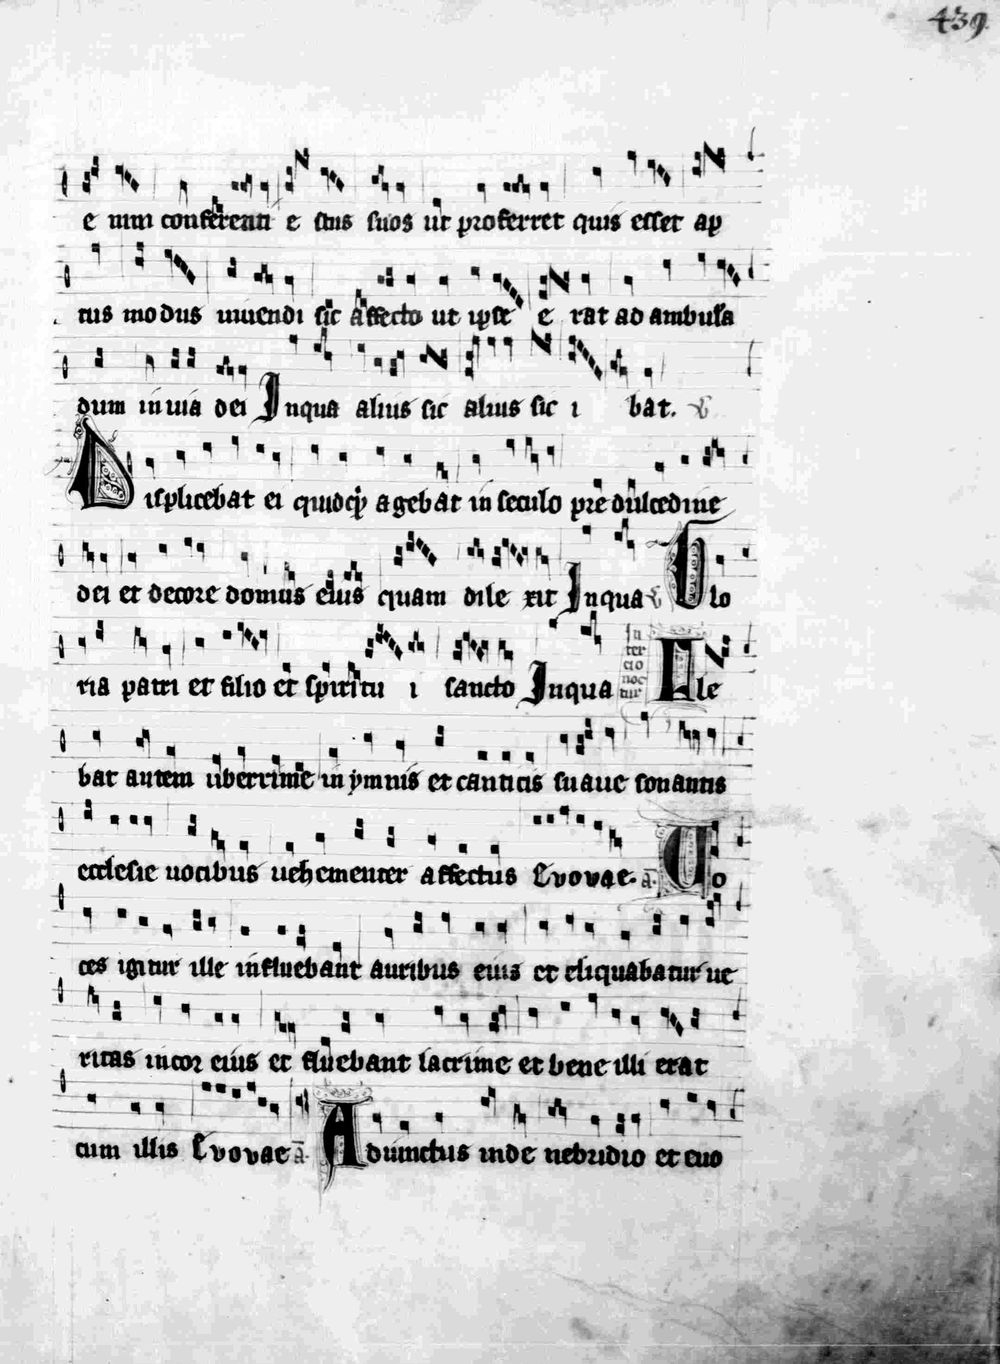 439
e num conferenti e stus suos ut proferret quis esset ap
tus modus uiuendi sic affecto ut ipse e rat ad ambula
dum in uia dei Inqua alius sic alius sic i bat. V
Displicebat ei quidqd agebat in seculo pre dulcedine
dei et decore domus eius quam dile xit Inqua V Glo
ria patri et filio et spiritu i sancto Inqua In ter cio noc tur Fle
bat autem uberrime in ymnis et canticis suaue sonantis
ecclesie uocibus uehementer affectus Evovae. a. Uo
ces igitur ille influebant auribus eius et eliquabatur ue
ritas in cor eius et fluebant lacrime et bene illi erat
cum illis Evovae a. Adiunctus inde nebridio et euo